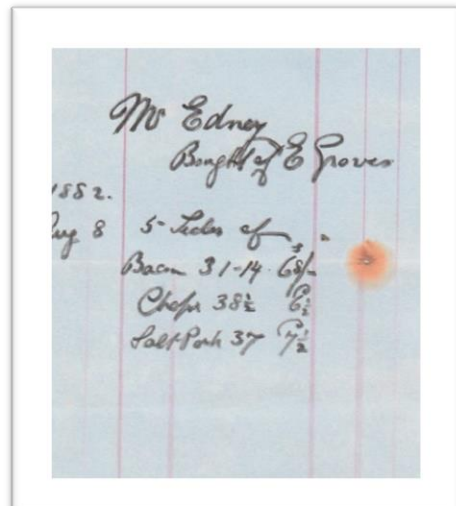 Mr Edney
Bought of E Groves
1882.
Aug 8 5 Sides of
Bacon 31-14 68/-
Chops 38½ 6½
Salt Pork 37 7½